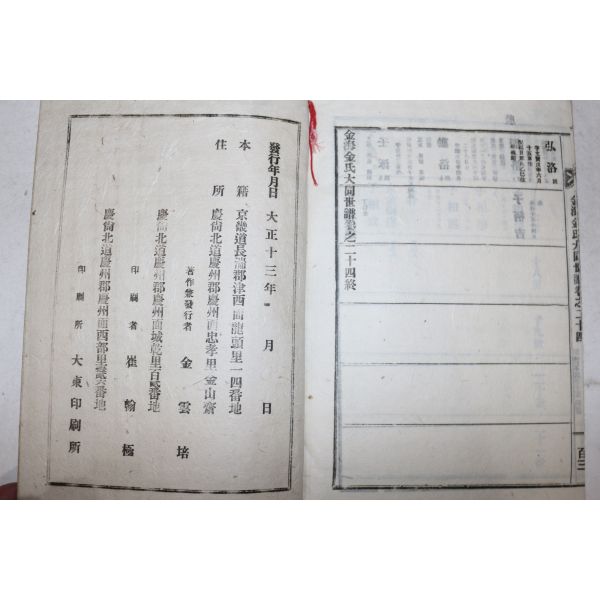 弘洛
金海金氏大同世譜卷之二十四終
金海金氏大同世譜卷之二十四
百三
發行年月日 大正十三年 月 日
本籍 京畿道長湍郡津西面龍頭里一四番地
住所 慶尙北道慶州郡慶州面忠孝里金山齋
著作兼發行者 金雲培
慶尙北道慶州郡慶州面城乾里百 番地
印刷者 崔翰極
慶尙北道慶州郡慶州面西部里 番地
印刷所 大東印刷所